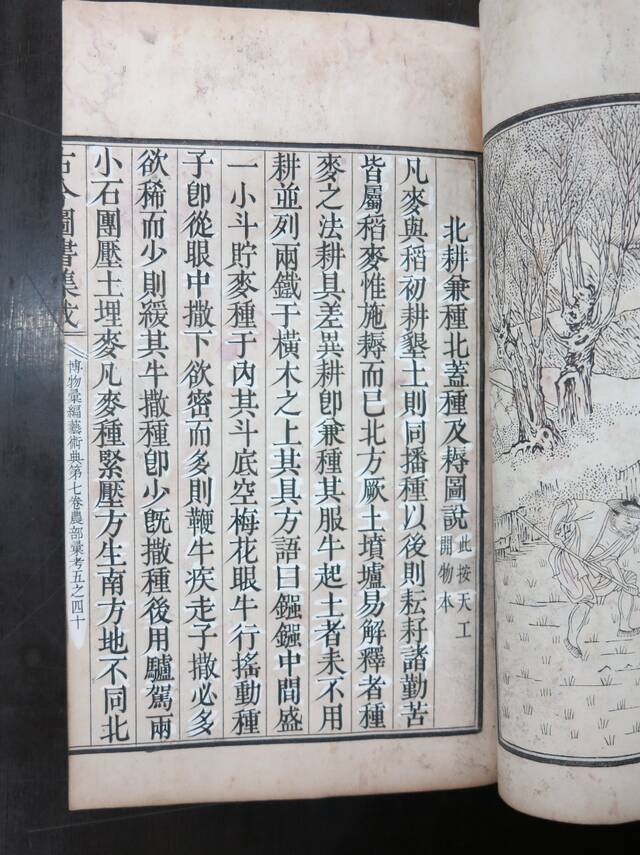 北耕兼種北蓋種及耨圖說此按天工開物本
凡麥與稻初耕墾土則同播種以後則耘耔諸勤苦
皆屬稻麥惟施耨而已北方厥土墳壚易解釋者種
麥之法耕具差異耕卽兼種其服牛起土者未不用
耕並列兩鐵于橫木之上其具方語曰鏹鏹中間盛
一小斗貯麥種于內其斗底空梅花眼牛行搖動種
子卽從眼中撒下欲密而多則鞭牛疾走子撒必多
欲稀而少則緩其牛撒種卽少旣撒種後用驢駕兩
小石團壓土埋麥凡麥種緊壓方生南方地不同北
古今圖書集成
博物彙編藝術典第七卷農部彙考五之四十